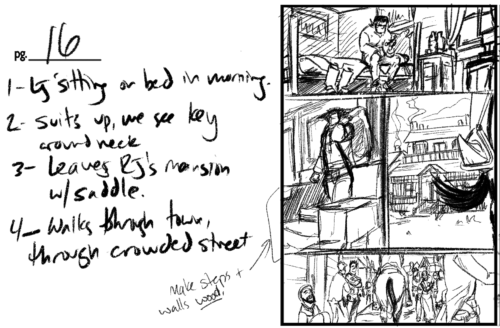 pg. 16
1- LJ sitting on bed in morning.
2- suits up, we see key
around neck
3- Leaves RJ's mansion
w/ saddle.
4- walks through town,
through crowded street
make steps +
walls wood.